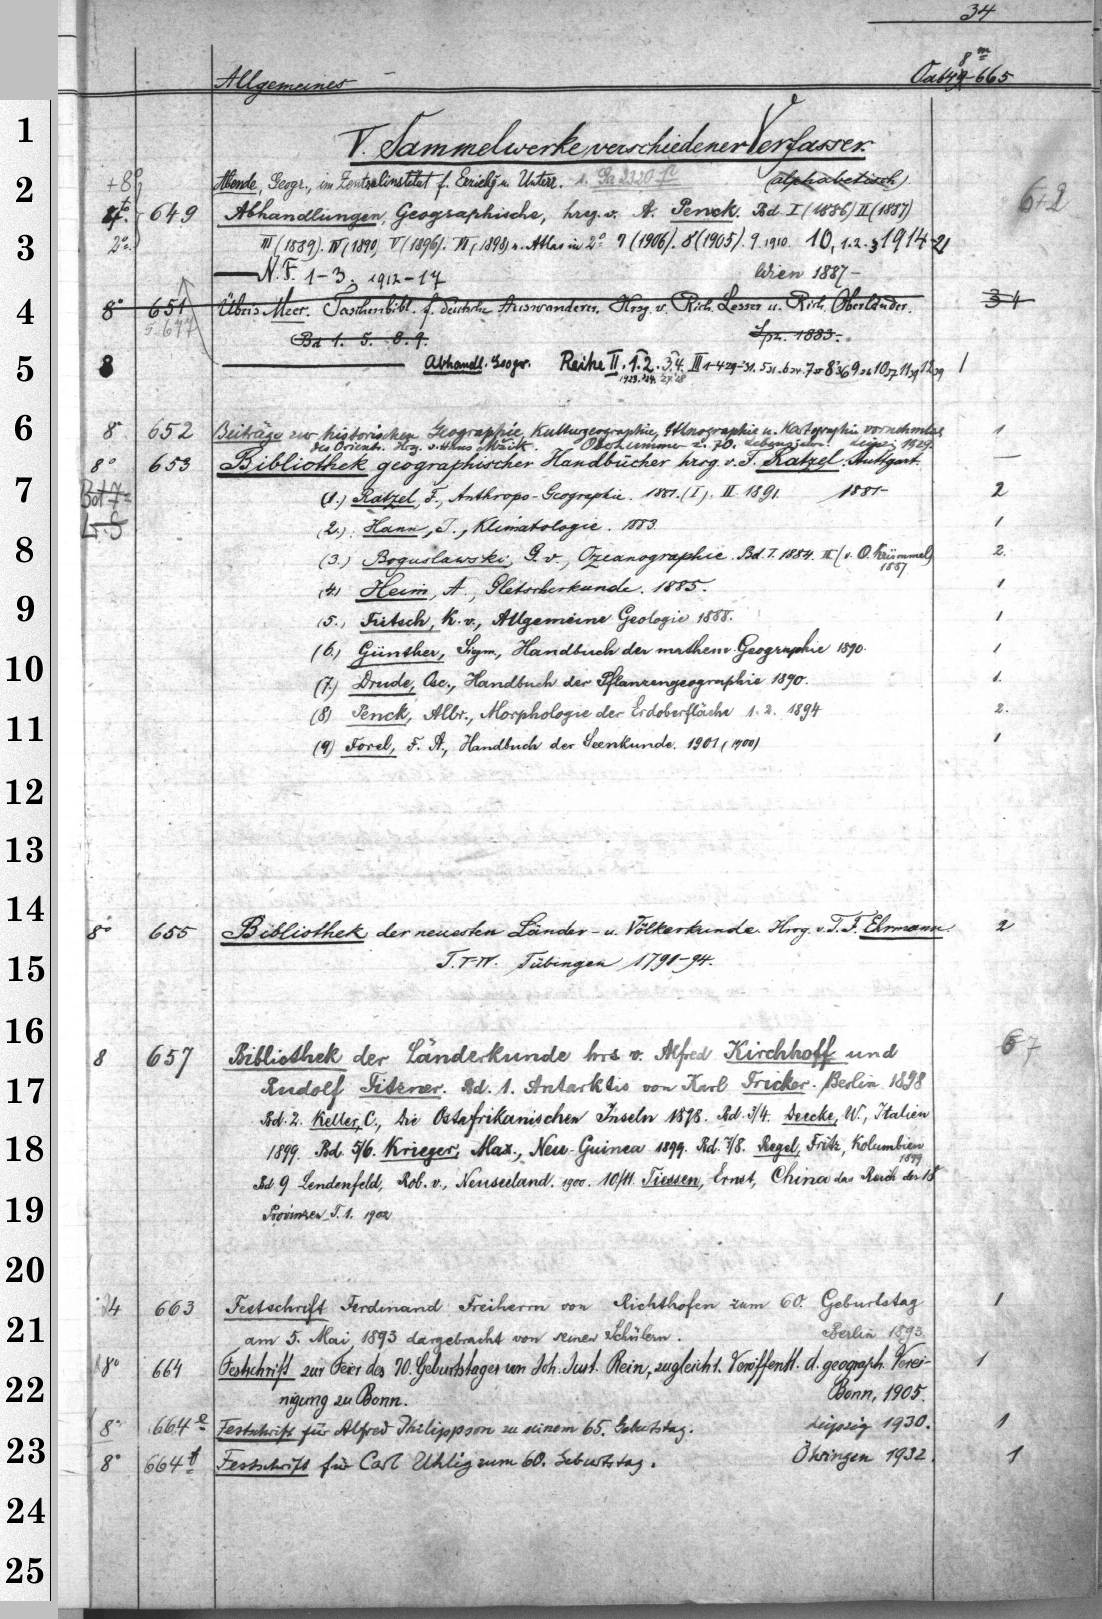 34
Allgemeines 8m 649-665
V. Sammelwerke verschiedener Verfasser.
+8° Abende, Geogr., im Zentralinstitut f. Erziehg u. Unterr. s. 2320 (alphabetisch)
4to 649 Abhandlungen, Geographische, hrsg. v. A. Penck. Bd. I (1886) II (1887) 6+2
2° III (1889). IV (1890, V (1896). VI, 1898) u. Atlas in 2° 7 (1906). 8 (1905). 9. 1910. 10, 1.2.3 1914-21
N. F. 1-3. 1912-17 Wien 1887-
8° 651 Übers Meer. Taschenbibl. f. deutsche Auswanderer. Hrsg. v. Rich. Lesser u. Rich. Oberländer. 3 4
Bd 1. 5. 8. 9. Lpz. 1883-
8 Abhandl. Geogr. Reihe II. 1. 2. 3. 4. III 1
8° 652 Beiträge zur historischen Geographie, Kulturgeographie, Ethnographie u. Kartographie vornehmlich 1
des Orients. Hrsg. v. Hans Mžik. Oberhummer z. 70. Leipzig 1929.
8° 653 Bibliothek geographischer Handbücher hrsg v. F. Ratzel. Stuttgart. —
Bot 7 (1.) Ratzel, F., Anthropo-Geographie. 1881. (I). II. 1891. 1881- 2
L. S (2.) Hann, J., Klimatologie. 1883 1
(3.) Boguslawski, G. v., Ozeanographie. Bd. I. 1884. II (v. O. Krümmel) 1887 2.
(4.) Heim, A., Gletscherkunde. 1885. 1
(5.) Fritsch, K. v., Allgemeine Geologie 1888. 1
(6.) Günther, Sigm., Handbuch der mathem. Geographie 1890. 1
(7.) Drude, Osc., Handbuch der Pflanzengeographie 1890. 1.
(8) Penck, Albr., Morphologie der Erdoberfläche 1. 2. 1894 2.
(9) Forel, F. A., Handbuch der Seenkunde. 1901 (1900) 1
8° 655 Bibliothek der neuesten Länder- u. Völkerkunde. Hrsg. v. T. F. Ehrmann. 2
T. I-IV. Tübingen 1791-94.
8 657 Bibliothek der Länderkunde hrs v. Alfred Kirchhoff und 7
Rudolf Fitzner. Bd. 1. Antarktis von Karl Fricker. Berlin 1898
Bd. 2. Keller, C., Die Ostafrikanischen Inseln 1898. Bd. 3/4. Deecke, W., Italien
1899. Bd. 5/6. Krieger, Max., Neu-Guinea 1899. Bd. 7/8. Regel, Fritz, Kolumbien 1899
Bd. 9 Lendenfeld, Rob. v., Neuseeland. 1900. 10/11. Tiessen, Ernst, China das Reich der 18
Provinzen T. 1. 1902
4 663 Festschrift Ferdinand Freiherrn von Richthofen zum 60. Geburtstag 1
am 5. Mai 1893 dargebracht von seinen Schülern. Berlin 1893
8° 664 Festschrift zur Feier des 70. Geburtstages von Joh. Just. Rein, zugleich 1. Veröffentl. d. geograph. Verei- 1
nigung zu Bonn. Bonn, 1905.
8° 664e Festschrift für Alfred Philippson zu seinem 65. Geburtstag. Leipzig 1930. 1
8° 664f Festschrift für Carl Uhlig zum 60. Geburtstag. Öhringen 1932. 1
1
2
3
4
5
6
7
8
9
10
11
12
13
14
15
16
17
18
19
20
21
22
23
24
25